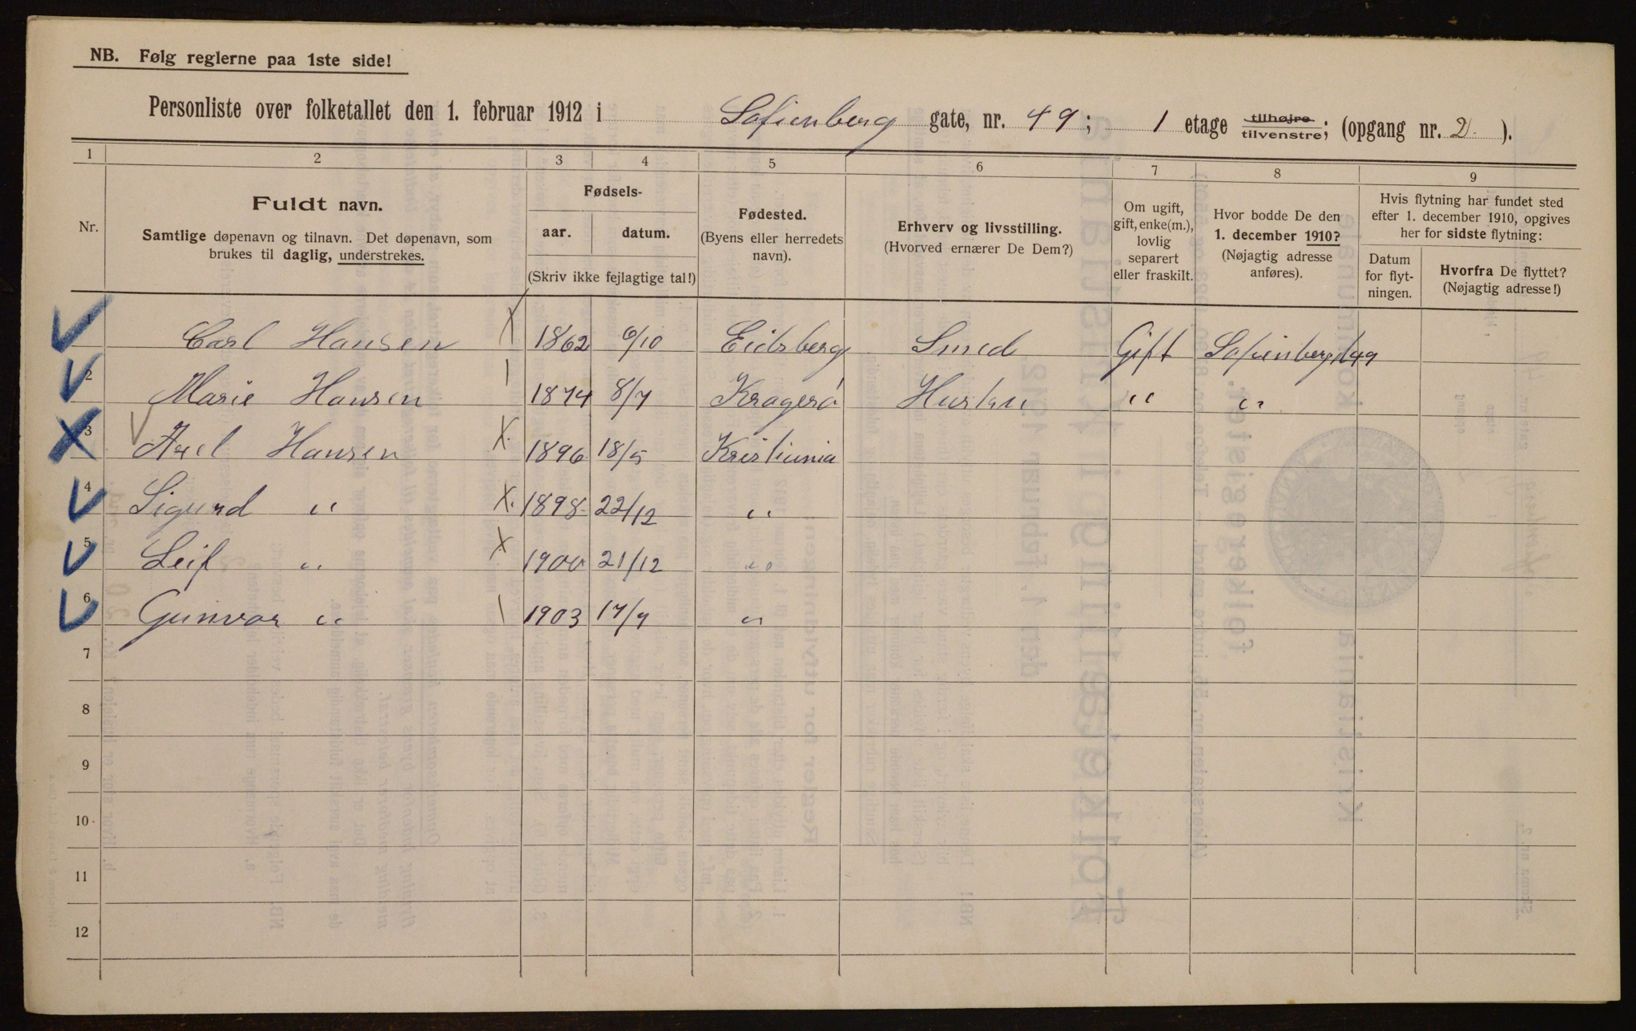 NB. Følg reglerne paa 1ste side!
Personliste over folketallet den 1. februar 1912 i Sofienberg gate, nr. 49; 1 etage tilhøjre tilvenstre; (opgang nr. 2.).
1 2 3 4 5 6 7 8 9
Nr.
Fuldt navn.
Samtlige døpenavn og tilnavn. Det døpenavn, som
brukes til daglig, understrekes.
Fødsels-
aar. datum.
(Skriv ikke fejlagtige tal!)
Fødested.
(Byens eller herredets
navn).
Erhverv og livsstilling.
(Hvorved ernærer De Dem?)
Om ugift,
gift, enke(m.),
lovlig
separert
eller fraskilt.
Hvor bodde De den
1. december 1910?
(Nøjagtig adresse
anføres).
Hvis flytning har fundet sted
efter 1. december 1910, opgives
her for sidste flytning:
Datum
for flyt-
ningen.
Hvorfra De flyttet?
(Nøjagtig adresse!)
Carl Hansen X 1862 6/10 Eidsberg Smed Gift Sofienbergg 49
2 Marie Hansen 1 1874 8/7 Kragerø Hustru " "
3 Axel Hansen X. 1896 18/5 Kristiania
4 Sigurd " X. 1898 22/12 "
5 Leif " X 1900 21/12 "
6 Gunvor " 1 1903 17/9 "
7
8
9
10
11
12